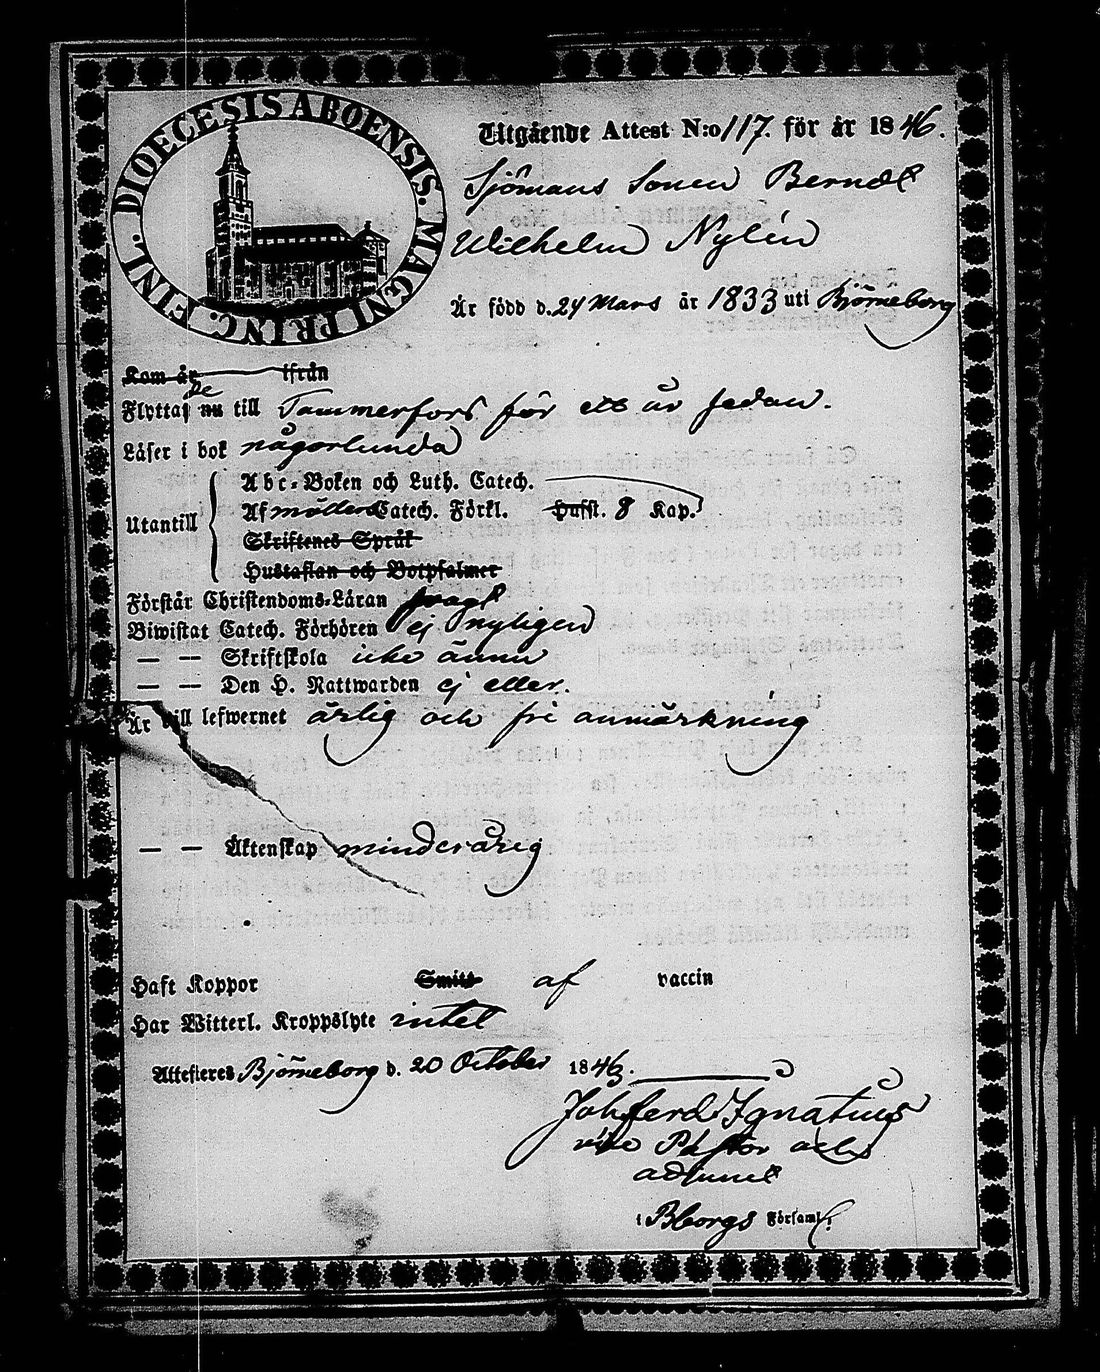 DIOECESIS ABOENSIS. MAGNI PRINC. FINL.
Utgående Attest N:o 117. för år 1846.
Sjömans Sonen Berndt
Wilhelm Nylén
Är född d. 24 Mars år 1833 uti Björneborg
Kom år ifrån
Flyttade nu till Tammerfors för ett år sedan.
Läser i bok någorlunda
Utantill
Abc-Boken och Luth. Catech.
Af möllers Catech. Förkl. Hufst. 8 Kap.
Skriftenes Språk
Hustaflan och Botpsalmer
Förstår Christendoms-Läran svagt
Biwistat Catech. Förhören ej nyligen
— — Skriftskola icke ännu
— — Den H. Nattwarden ej eller.
Är till lefwernet ärlig och fri anmärkning
— — Äktenskap minderårig
Haft Koppor Smitt af vaccin
Har Witterl. Kroppslyte intet
Attesteres Björneborg d. 20 October 1846.
Joh ferd Ignatius
vice Pastor och
adjunct
i Bborgs Församl.